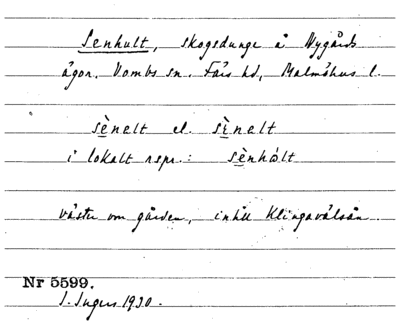 Senhult, skogsdunge å Nygårds
ägor. Vombs sn. Färs hd, Malmöhus l.
sènelt el. sìnelt
i lokalt rspr.: sènhòlt
väster om gården, intill Klingavälsån.
Nr 5599.
I. Ingers 1930.